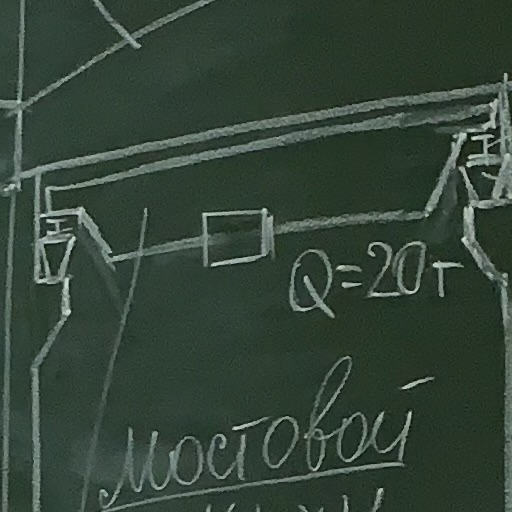 Q=20т
мостовой